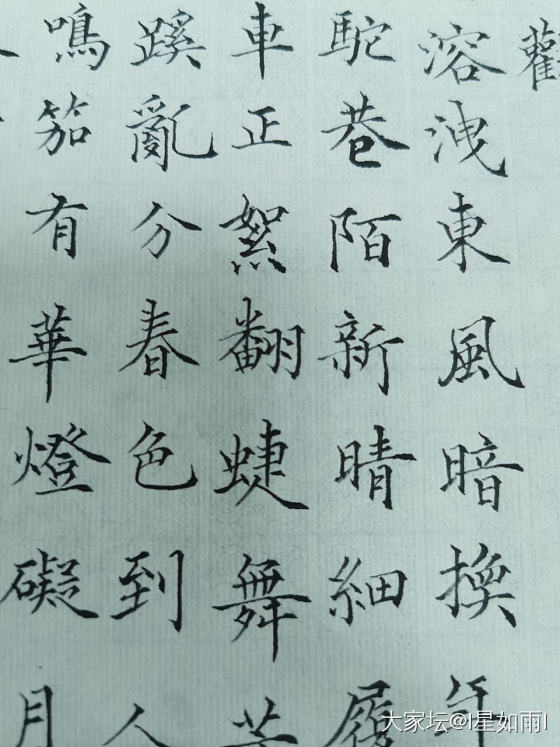 溶洩東風暗換年
駝巷陌新晴細履
車正絮翻蜨舞芳
蹊亂分春色到人
鳴笳有華燈礙月
大家坛@I星如雨I